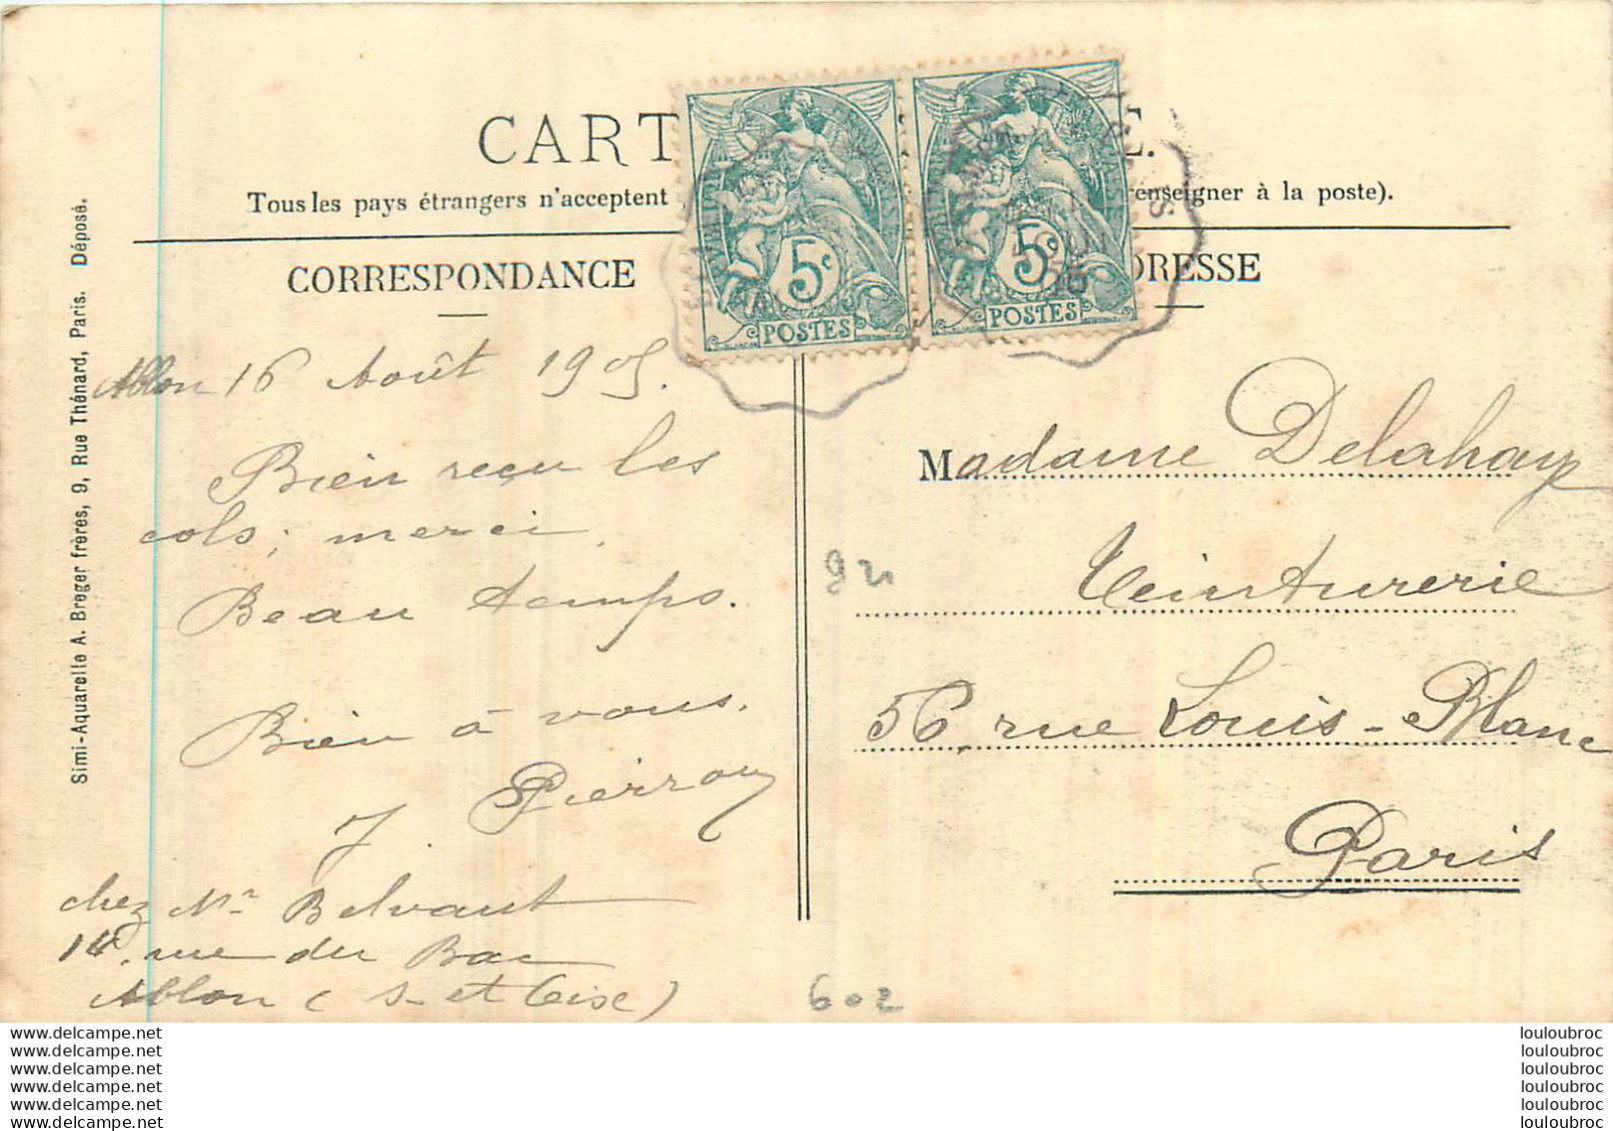 CART
Tous les pays étrangers n'acceptent
enseigner à la poste).
CORRESPONDANCE
DRESSE
5c
POSTES
5c
POSTES
Simi-Aquarelle A. Breger frères, 9, Rue Thénard, Paris. Déposé.
Ablon 16 Août 1905.
Bien reçu les
cols; merci.
Beau temps.
Bien à vous.
J Pierron
chez Mr Belvaut
14, rue du Bac
Ablon (S-et Oise)
Madame Delahaye
Teinturerie
56, rue Louis-Blanc
Paris
92
602
www.delcampe.net
www.delcampe.net
www.delcampe.net
www.delcampe.net
www.delcampe.net
www.delcampe.net
louloubroc
louloubroc
louloubroc
louloubroc
louloubroc
louloubroc